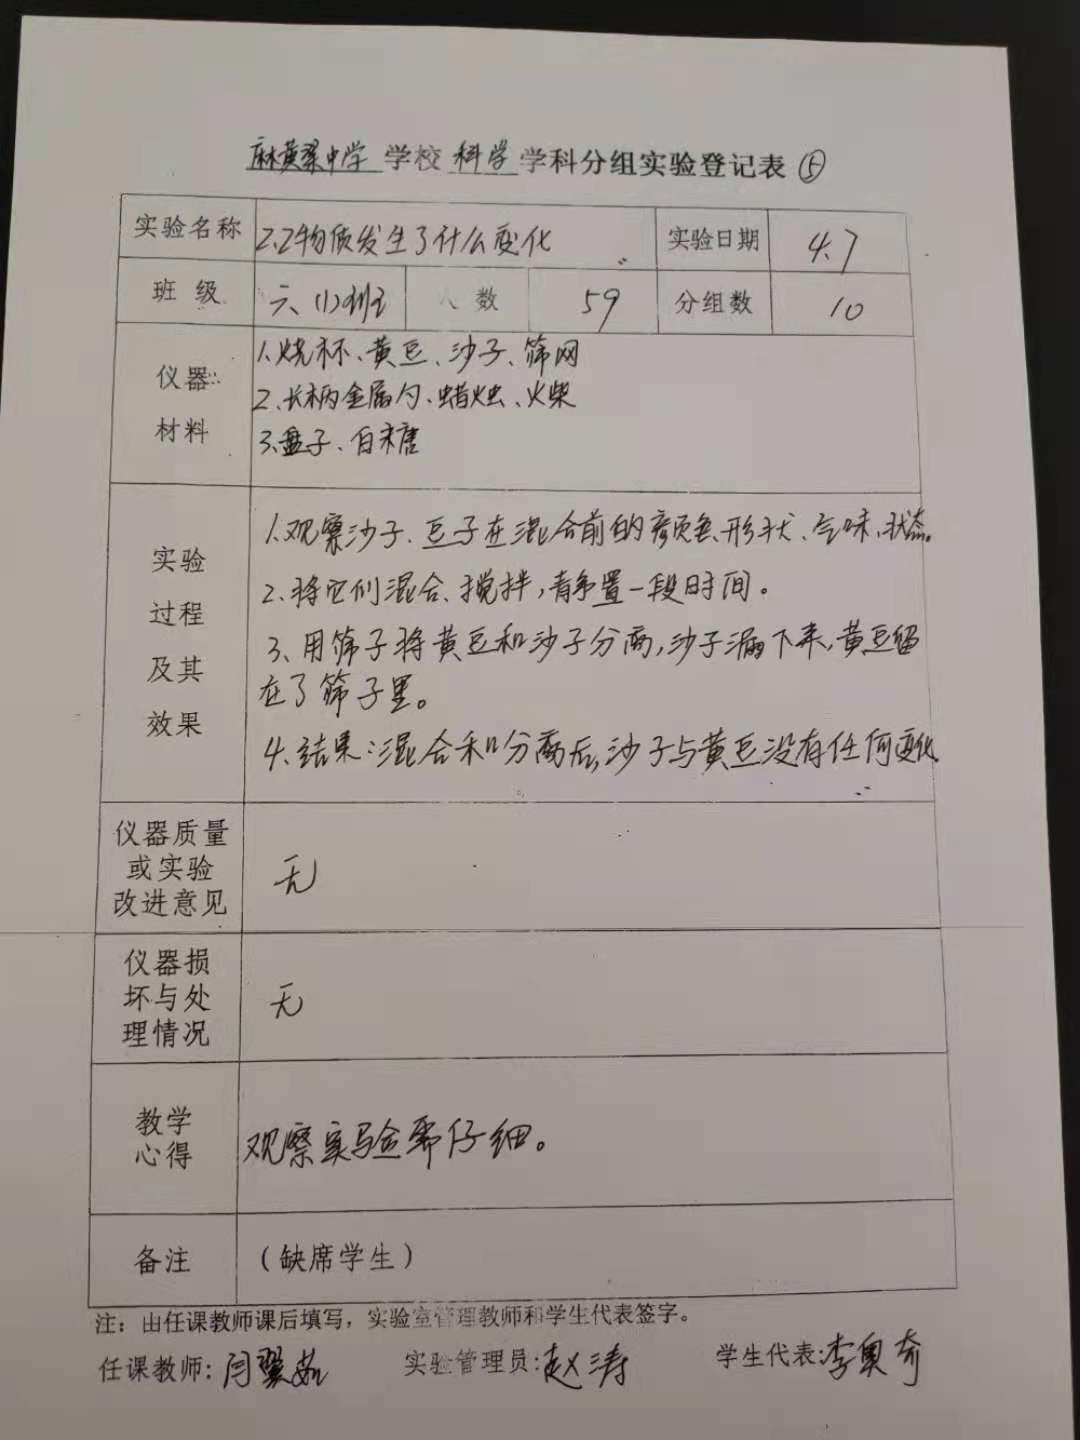 麻黄梁中学 学校 科学 学科分组实验登记表 ⑤
实验名称 2.2物质发生了什么变化 实验日期 4.7
班 级 六、(1)班 人 数 59 分组数 10
仪器
材料
1.烧杯、黄豆、沙子、筛网
2.长柄金属勺、蜡烛、火柴
3.盘子、白糖
实验
过程
及其
效果
1.观察沙子、豆子在混合前的颜色、形状、气味、状态。
2.将它们混合、搅拌,静置一段时间。
3、用筛子将黄豆和沙子分离,沙子漏下来,黄豆留
在了筛子里。
4.结果:混合和分离后,沙子与黄豆没有任何变化
仪器质量
或实验
改进意见
无
仪器损
坏与处
理情况
无
教学
心得
观察实验需仔细。
备注 (缺席学生)
注:由任课教师课后填写,实验室管理教师和学生代表签字。
任课教师: 闫翠茹 实验管理员:赵涛 学生代表:李奥奇